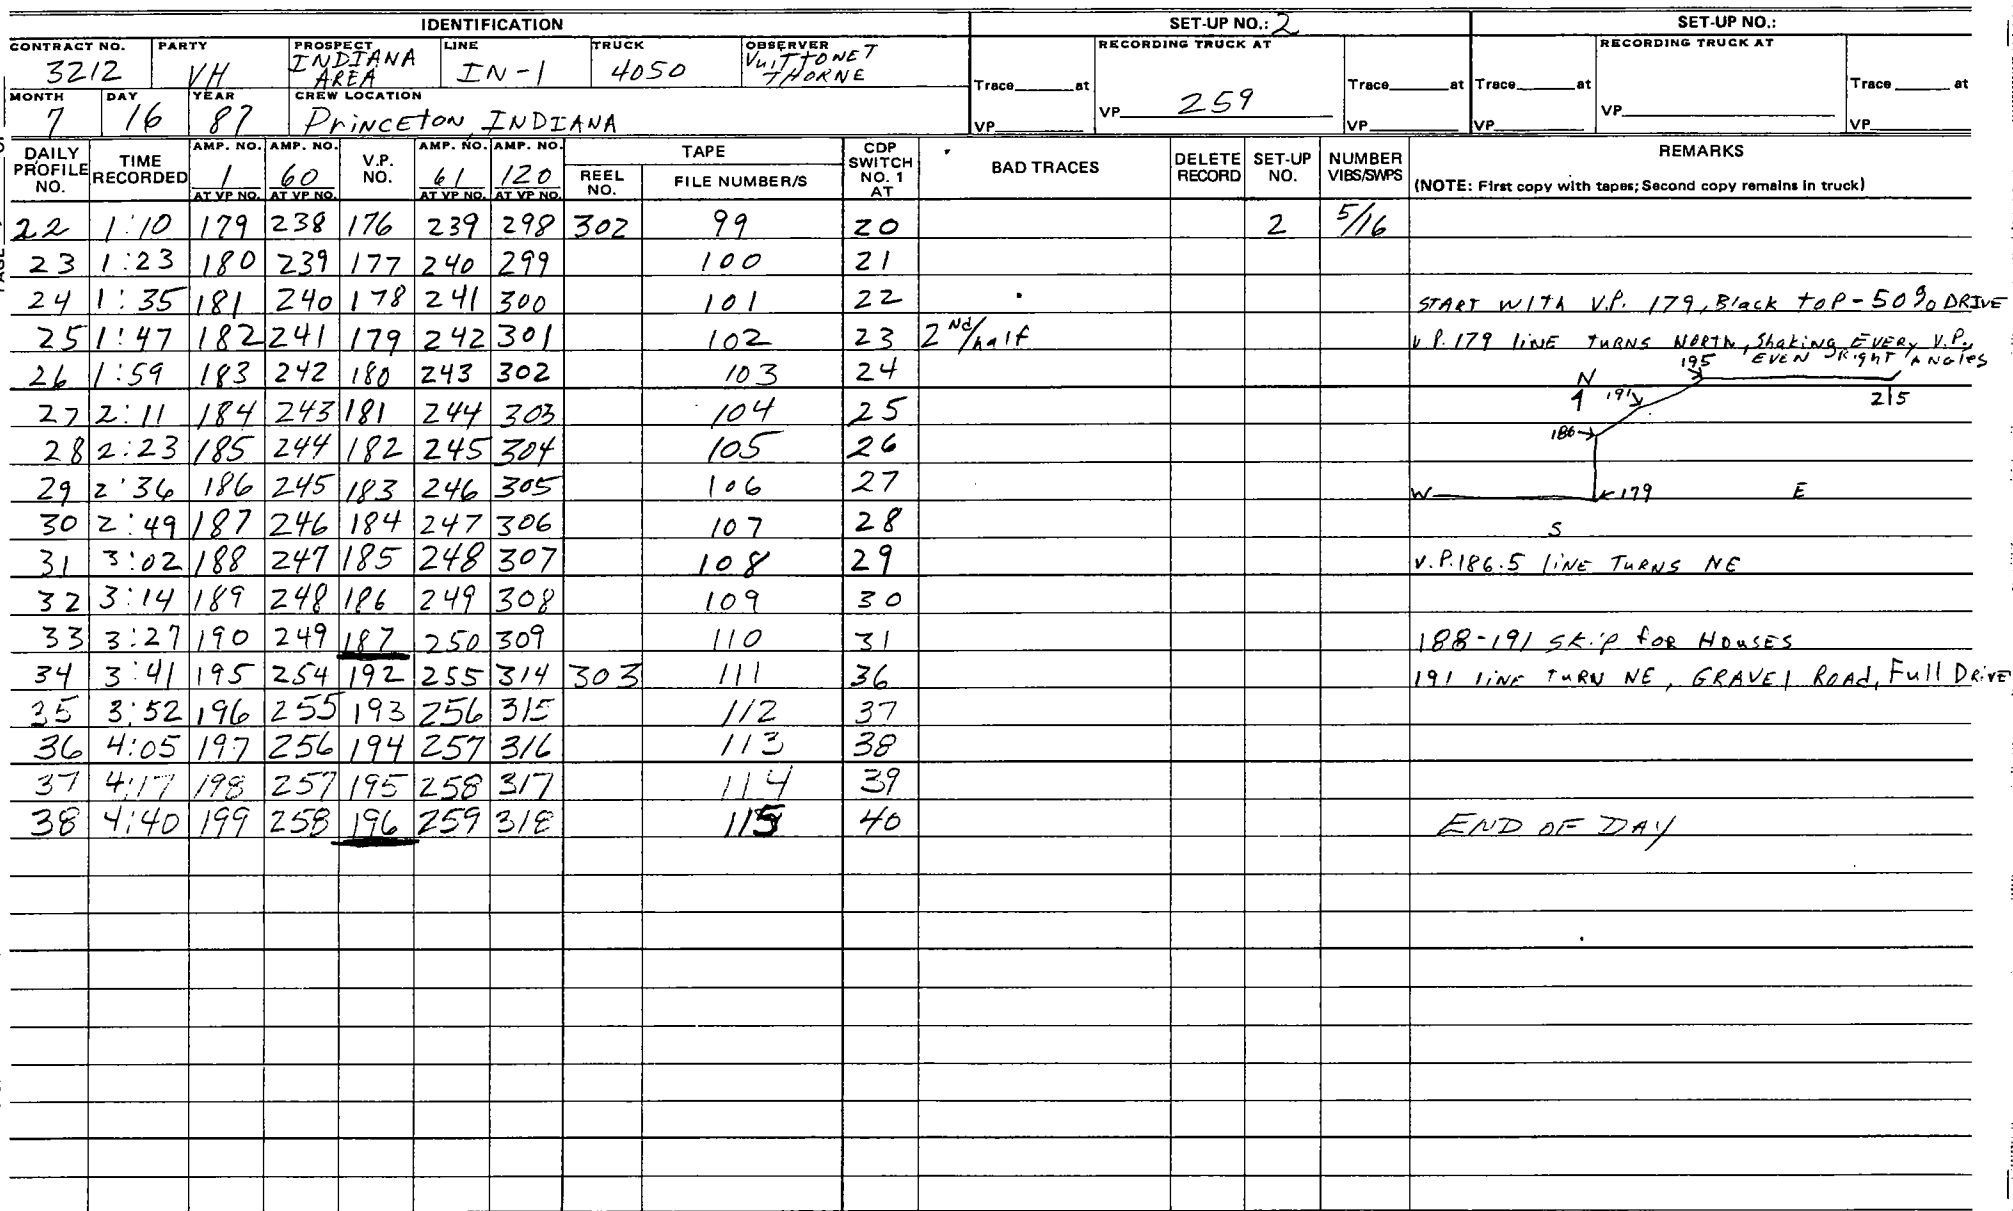 IDENTIFICATION SET-UP NO.: 2 SET-UP NO.:
CONTRACT NO. PARTY PROSPECT LINE TRUCK OBSERVER RECORDING TRUCK AT RECORDING TRUCK AT
3212 VH INDIANA AREA IN-1 4050 VuITTONET THORNE
Trace at Trace at Trace at Trace at
MONTH DAY YEAR CREW LOCATION
7 16 87 PrINCETON, INDIANA
VP VP 259 VP VP VP VP
DAILY PROFILE NO. TIME RECORDED AMP. NO. 1 AT VP NO. AMP. NO. 60 AT VP NO. V.P. NO. AMP. NO. 61 AT VP NO. AMP. NO. 120 AT VP NO. TAPE REEL NO. FILE NUMBER/S CDP SWITCH NO. 1 AT BAD TRACES DELETE RECORD SET-UP NO. NUMBER VIBS/SWPS REMARKS
(NOTE: First copy with tapes; Second copy remains in truck)
22 1:10 179 238 176 239 298 302 99 20 2 5/16
23 1:23 180 239 177 240 299 100 21
24 1:35 181 240 178 241 300 101 22 START WITH V.P. 179, Black TOP - 50% DRIVE
25 1:47 182 241 179 242 301 102 23 2Nd/half V.P. 179 lINE TURNS NORTH, Shaking EVERY V.P. EVEN Right ANGles
26 1:59 183 242 180 243 302 103 24 N 195
27 2:11 184 243 181 244 303 104 25 191 215
28 2:23 185 244 182 245 304 105 26 186
29 2:36 186 245 183 246 305 106 27 W 179 E
30 2:49 187 246 184 247 306 107 28 S
31 3:02 188 247 185 248 307 108 29 V.P.186.5 lINE TURNS NE
32 3:14 189 248 186 249 308 109 30
33 3:27 190 249 187 250 309 110 31 188-191 SKip fOR HOuSES
34 3:41 195 254 192 255 314 303 111 36 191 lINE TURN NE, GRAVEl ROAd, Full DRIVE
35 3:52 196 255 193 256 315 112 37
36 4:05 197 256 194 257 316 113 38
37 4:17 198 257 195 258 317 114 39
38 4:40 199 258 196 259 318 115 40 END OF DAY